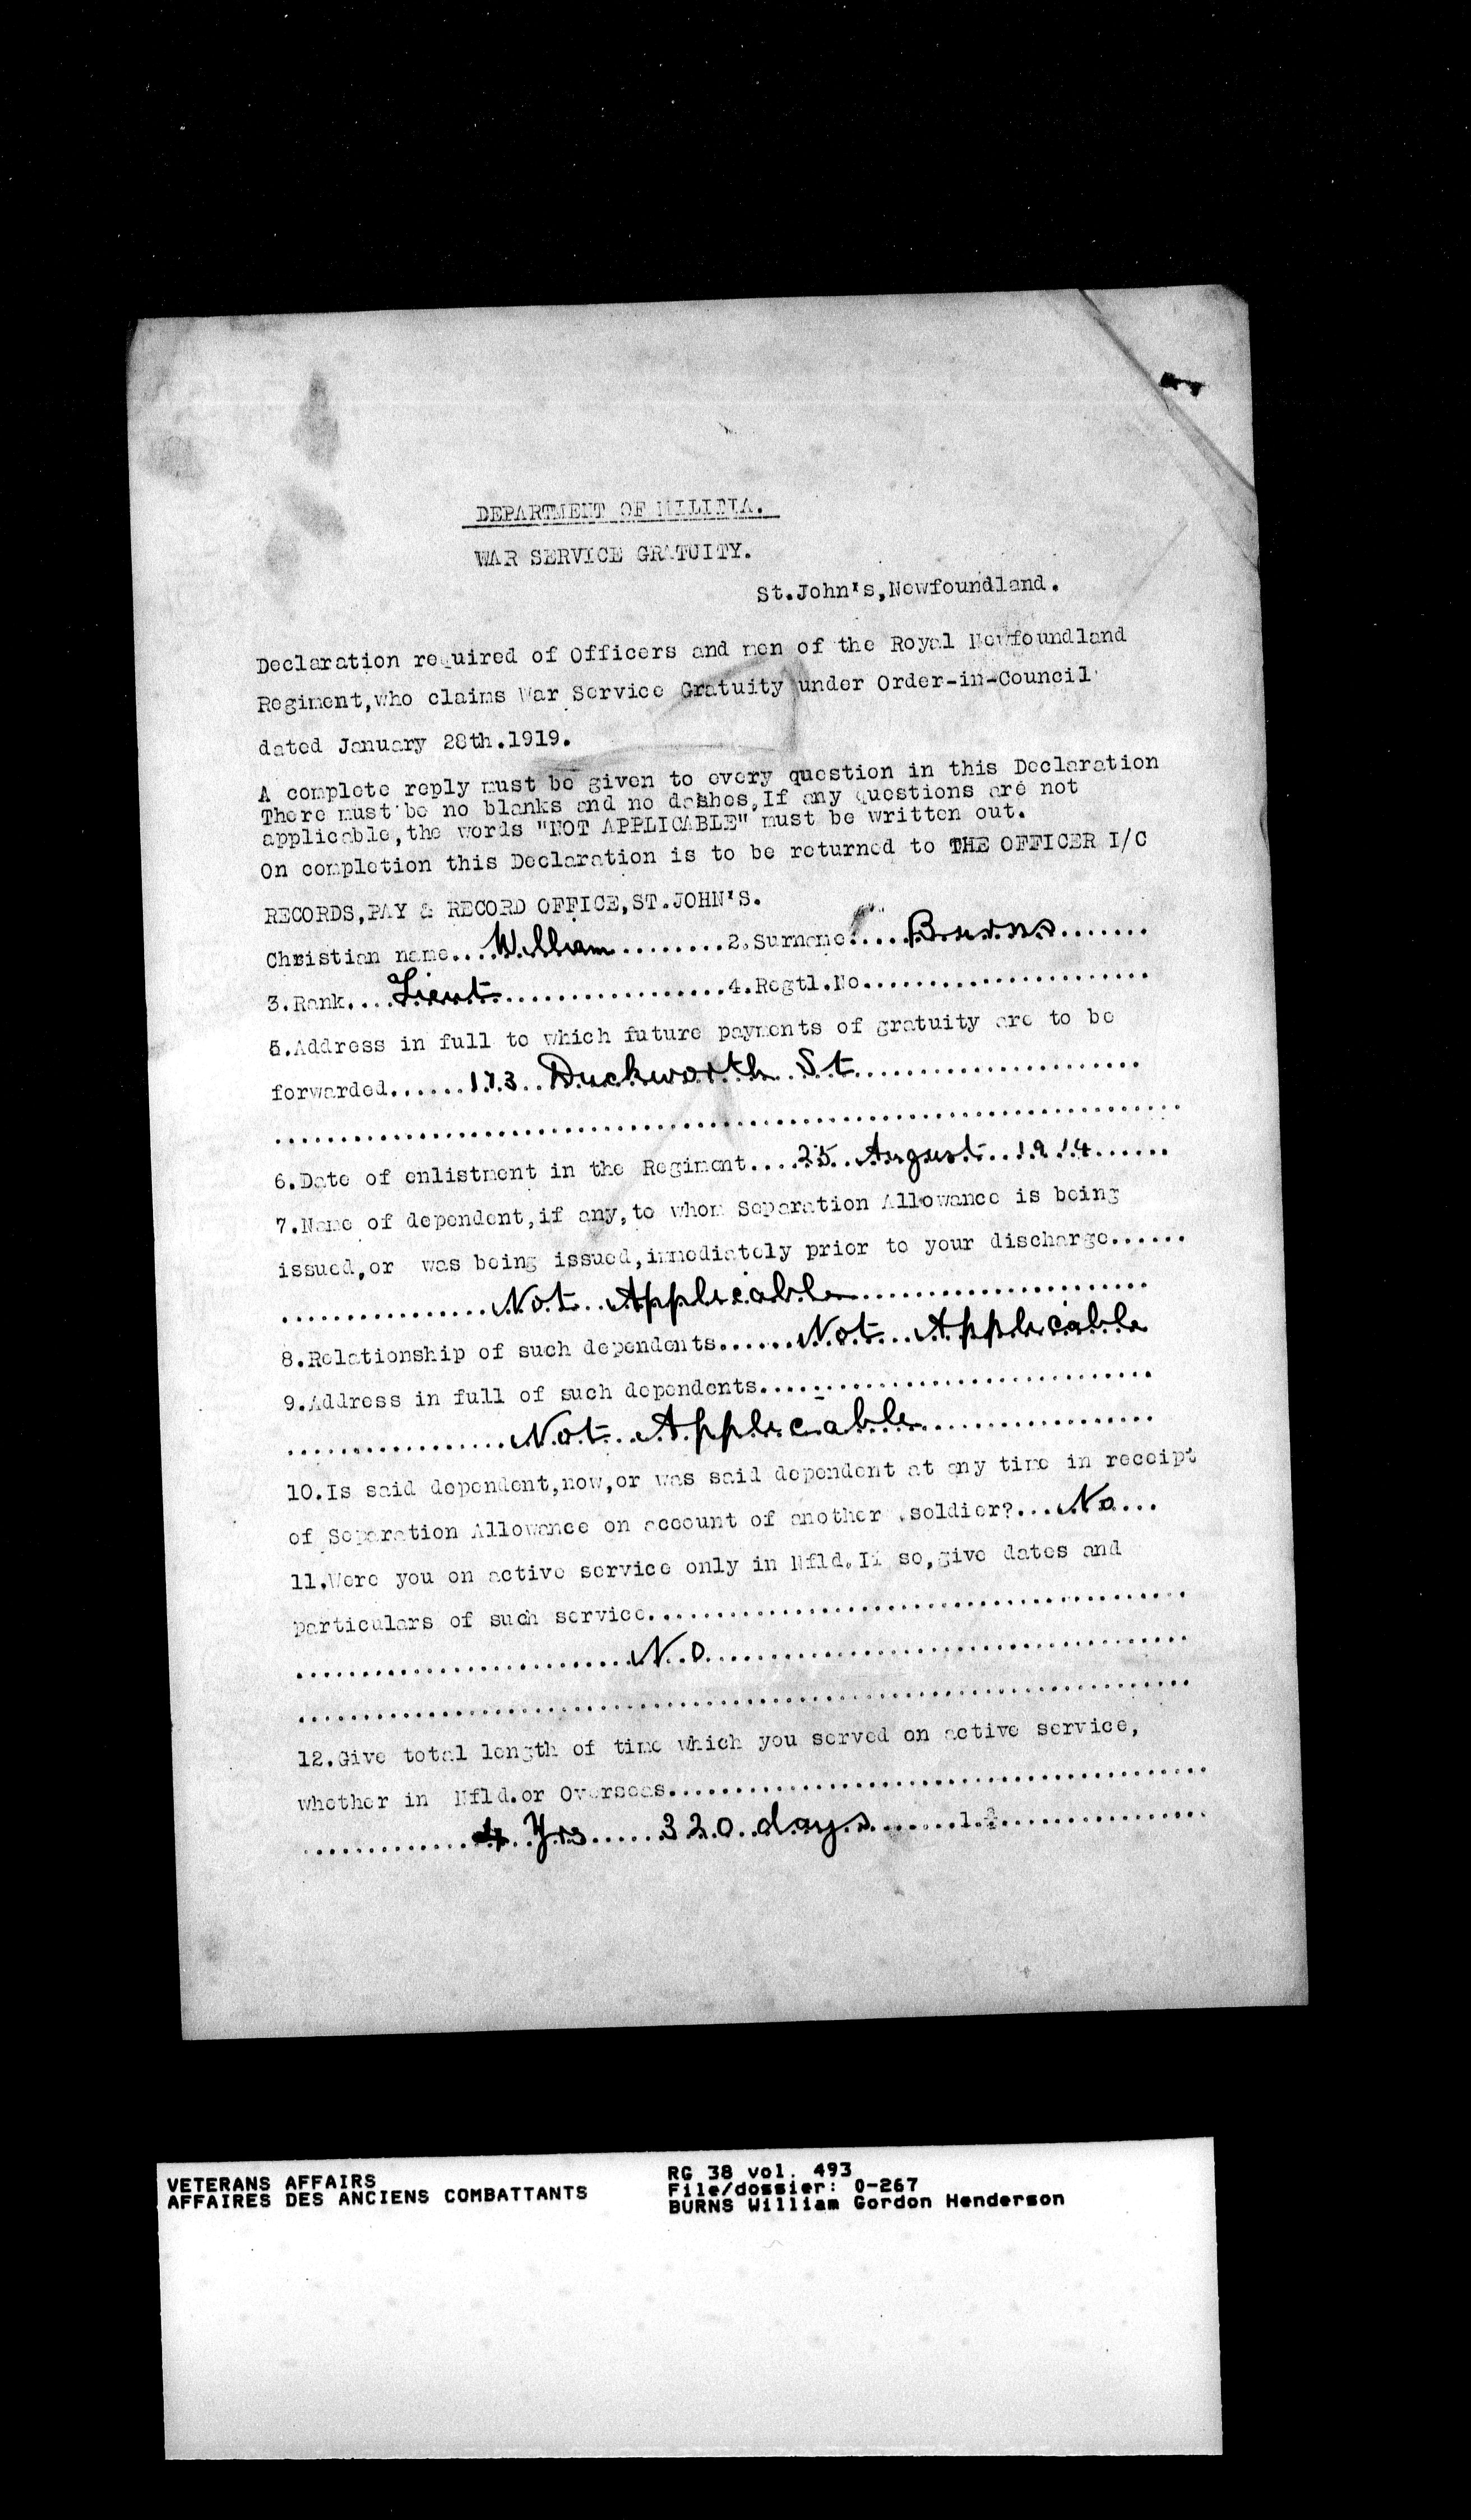 DEPARTMENT OF MILITIA.
WAR SERVICE GRATUITY.
St.John's,Newfoundland.
Declaration required of Officers and men of the Royal Newfoundland
Regiment,who claims War Service Gratuity under Order-in-Council
dated January 28th.1919.
A complete reply must be given to every question in this Declaration
There must be no blanks and no dashes,If any questions are not
applicable,the words "NOT APPLICABLE" must be written out.
On completion this Declaration is to be returned to THE OFFICER I/C
RECORDS,PAY & RECORD OFFICE,ST.JOHN'S.
Christian name....William.........2.Surname.....Burns.......
3.Rank....Lieut..................4.Regtl.No......................
5.Address in full to which future payments of gratuity are to be
forwarded......173..Duckworth St......................
......................................................................
6.Date of enlistment in the Regiment....25..August..1914......
7.Name of dependent,if any,to whom Separation Allowance is being
issued,or was being issued,immediately prior to your discharge......
................Not..Applicable......................
8.Relationship of such dependents......Not...Applicable
9.Address in full of such dependents..............................
.................Not..Applicable..................
10.Is said dependent,now,or was said dependent at any time in receipt
of Separation Allowance on account of another soldier?...No...
11.Were you on active service only in Nfld.If so,give dates and
particulars of such service.........................................
..........................No.....................................
....................................................................
12.Give total length of time which you served on active service,
whether in Nfld.or Overseas.........................................
.............4.Yrs.....320.days.......................
VETERANS AFFAIRS
AFFAIRES DES ANCIENS COMBATTANTS
RG 38 vol. 493
File/dossier: 0-267
BURNS William Gordon Henderson